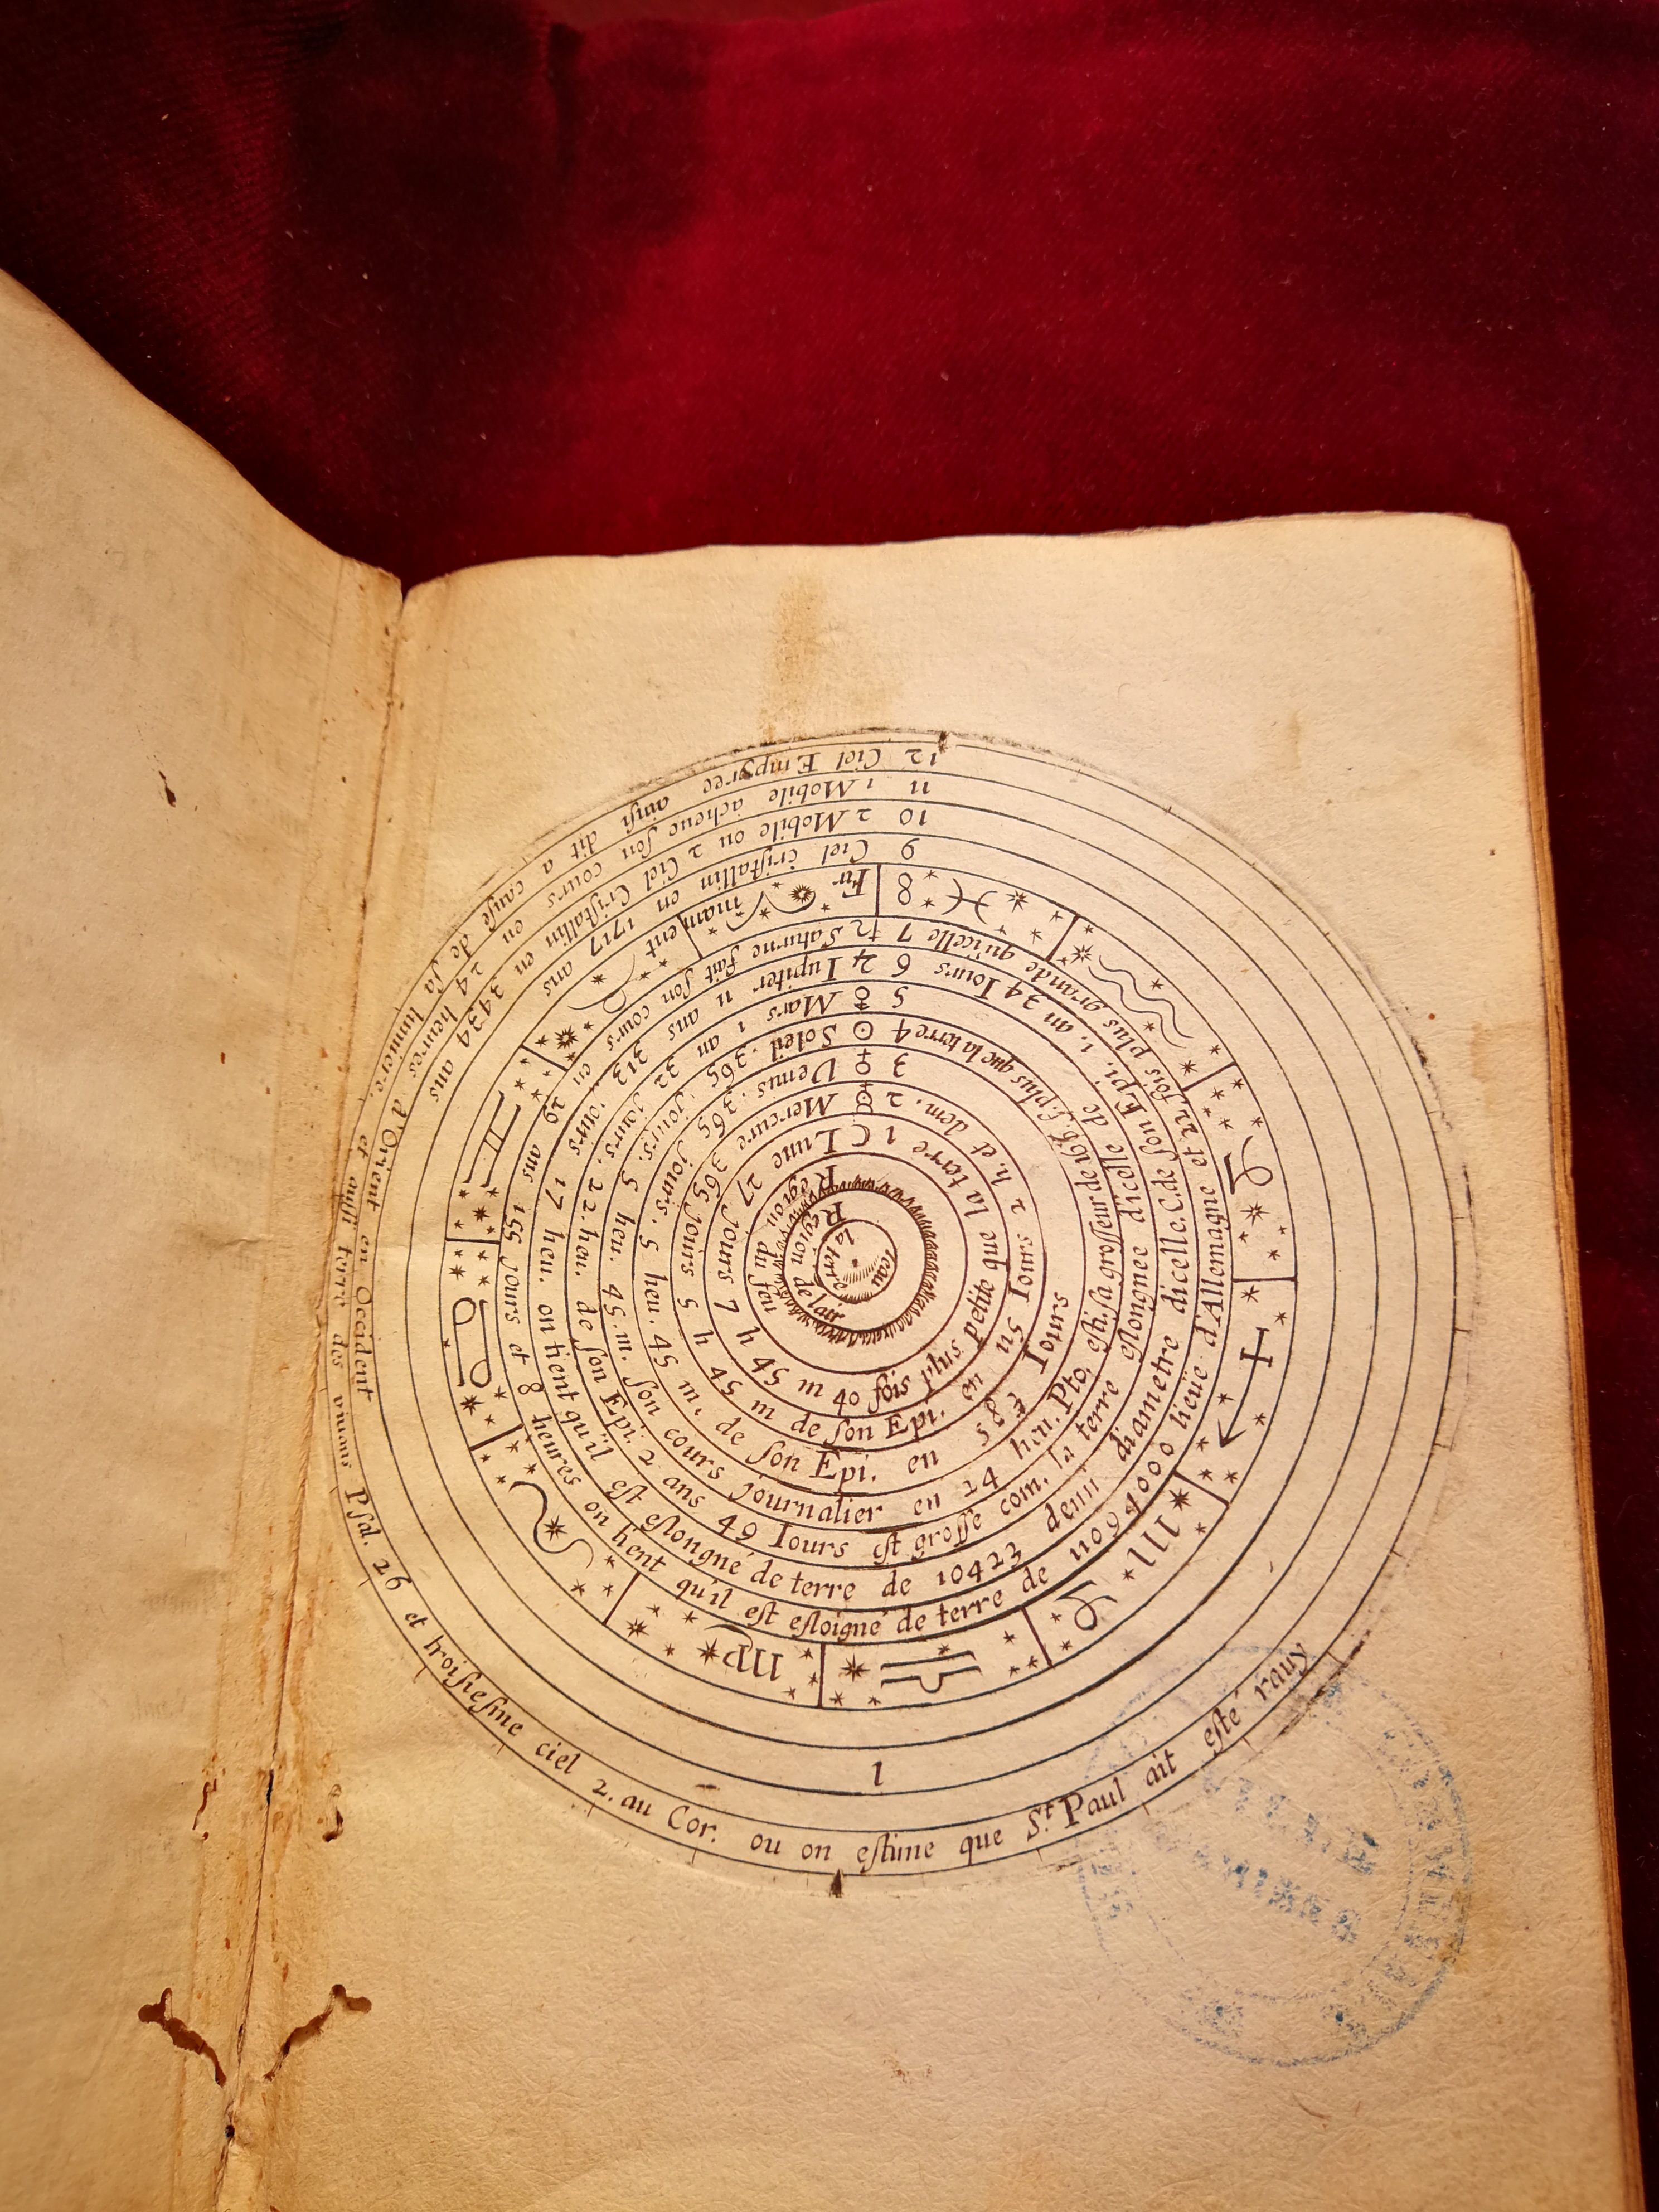 12 Ciel Empyree ainsi dit a cause de sa lumiere. et aussi terre des viuans Psal. 26 et troisiesme ciel 2. au Cor. ou on estime que St. Paul ait esté rauy
11 1 Mobile acheue son cours en 24 heures d'Orient en Occident
10 2 Mobile ou 2 Ciel Cristallin en 3434 ans
9 Ciel cristallin en 1717 ans
8 Firmament
7 ♄ Saturne fait son cours en 29 ans 155 jours et 8 heures on tient qu'il est esloigné de terre de 11094000 lieüe d'Allemagne et 22 fois plus grande qu'icelle
6 ♃ Iupiter 11 ans 313 jours 17 heu. on tient qu'il est eslongné de terre de 10423 demi diametre dicelle. C. de son Epi. 1. an 34 Iours
5 Mars 1 an 32 jours. 22. heu. de son Epi. 2 ans 49 Iours est grosse com. la terre eslongnee dicelle de
4 ☉ Soleil. 365 jours. 5 heu. 45 m. son cours journalier en 24 heu. Pto. esti. sa grosseur de 166 f. plus que la terre
3 ♀ Venus. 365 jours. 5 heu. 45 m. de son Epi. en 583 Iours
2 ☿ Mercure 365 jours 5 h 45 m de son Epi. en 115 Iours 2 h. et dem.
1 ☾ Lune 27 jours 7 h 45 m 40 fois plus petite que la terre
Region du feu
Region de lair
la terre
leau
1